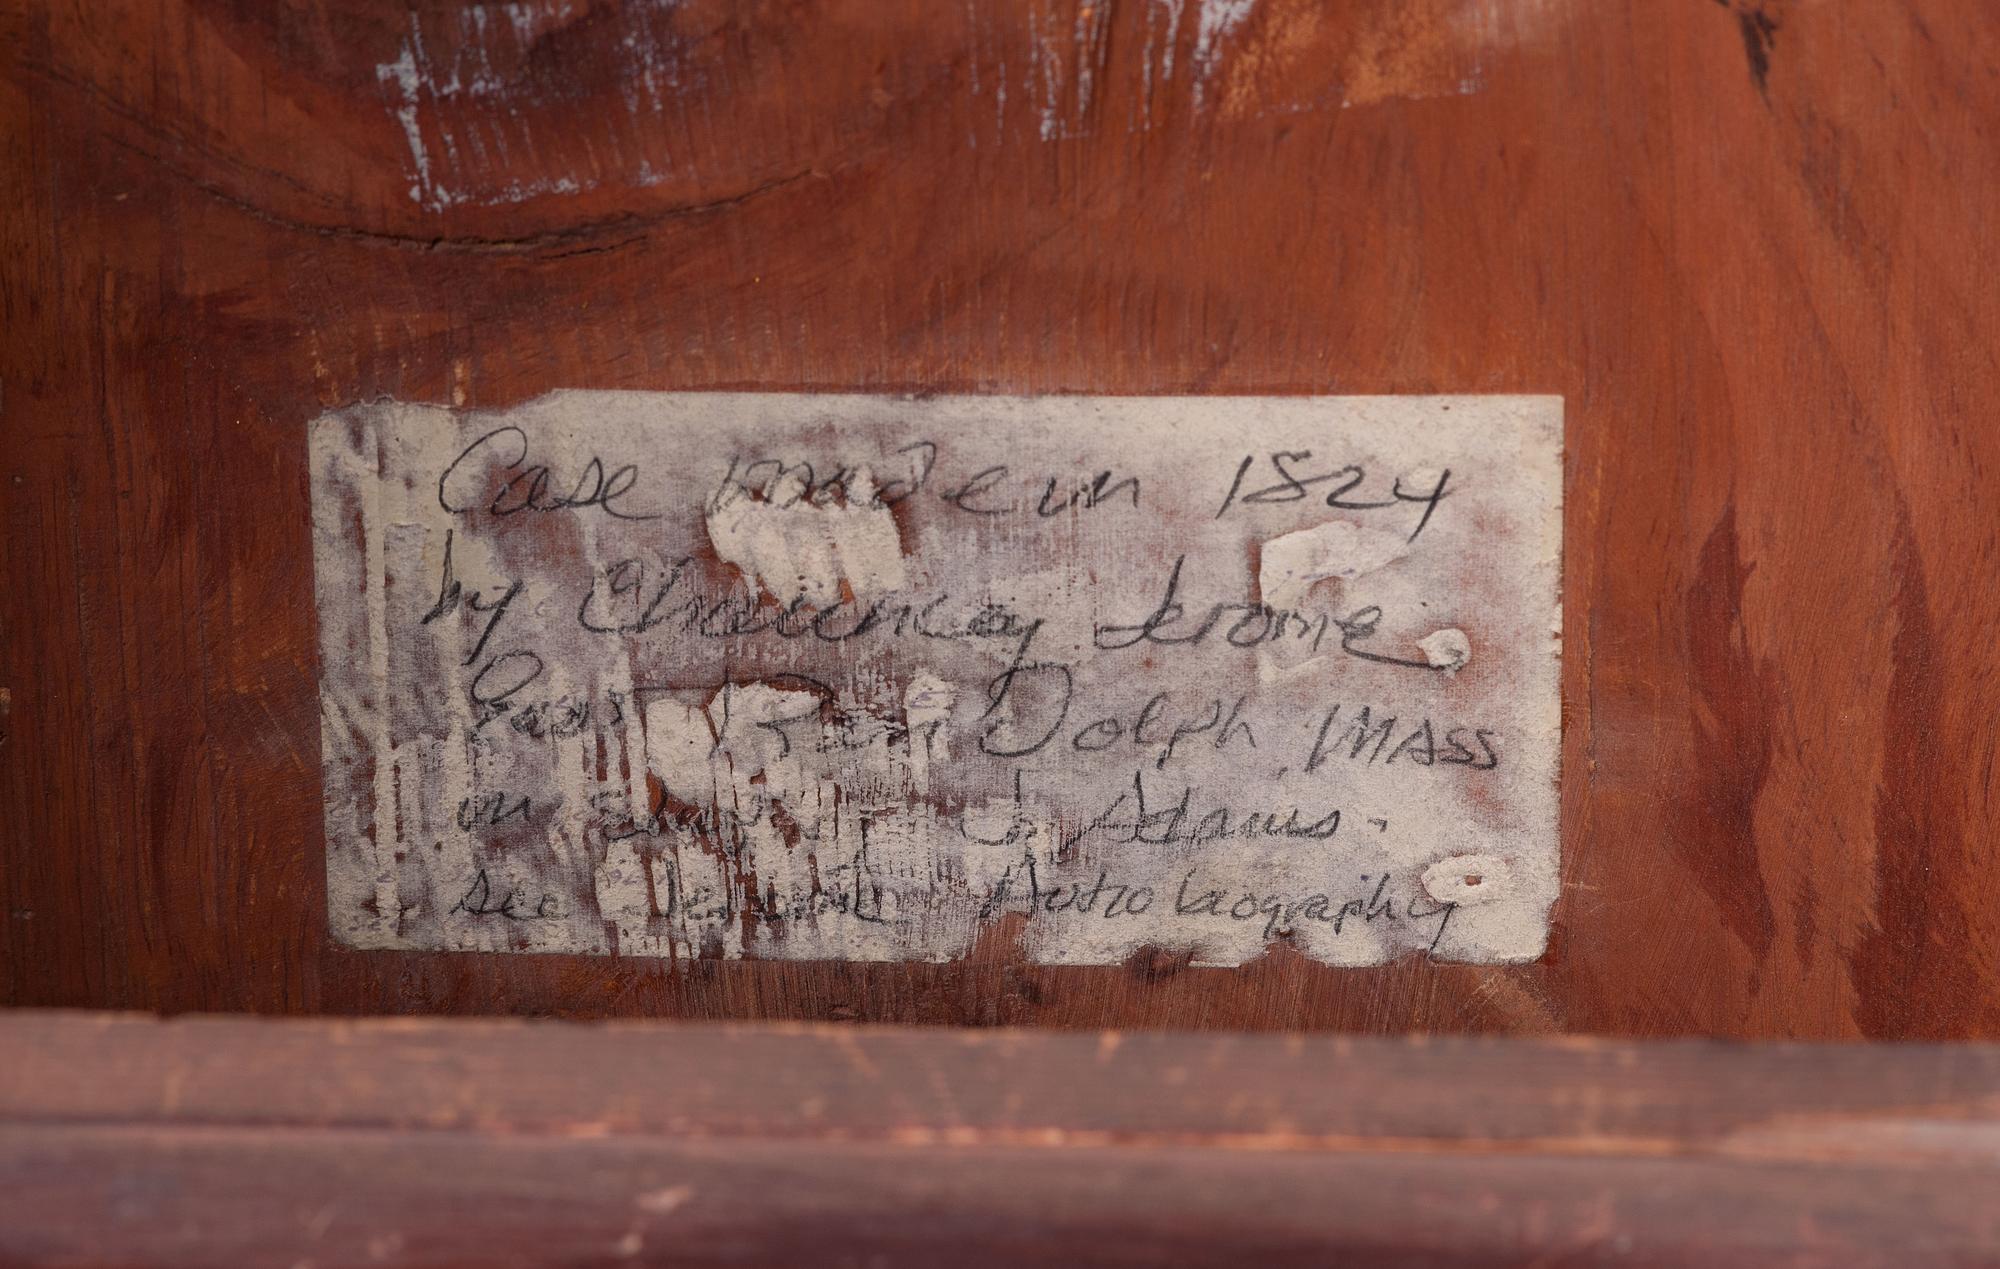 Case made in 1824
by Chauncey Jerome
East Ran Dolph, MASS
on J. Adams.
see Jerome Autobiography